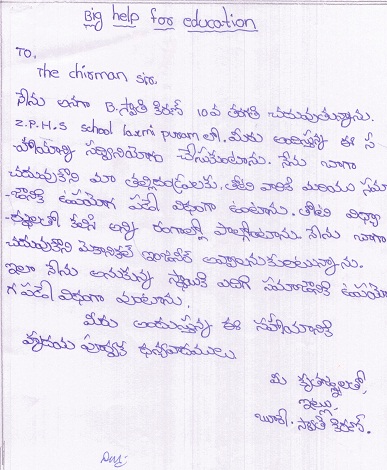 Big help for education
TO,
The chirman sir.
నేను అనగా B. స్వాతి కిరణ్ 10వ తరగతి చదువుతున్నాను.
Z.P.H.S school laxmi puram లో. మీరు అందిస్తున్న ఈ స
హాయాన్ని సద్వినియోగం చేసుకుంటాను. నేను బాగా
చదువుకొని మా తల్లిదండ్రులకు, తోటి వారికి మరియు సమా
-జానికి ఉపయోగ పడే విధంగా ఉంటాను. తోటి విద్యా
-ర్థులతో కలిసి అన్ని రంగాలల్లో పాల్గొంటాను. నేను బాగా
చదువుకొని మెకానికల్ ఇంజనీర్ అవ్వాలనుకుంటున్నాను.
ఇలా నేను అనుకున్న స్థాయికి ఎదిగి సమాజానికి ఉపయో
గపడే విధంగా వుంటాను.
మీరు అందిస్తున్న ఈ సహాయానికి
హృదయ పూర్వక ధన్యవాదములు
మీ కృతజ్ఞతలతో,
ఇట్లు,
స్వాతి కిరణ్.